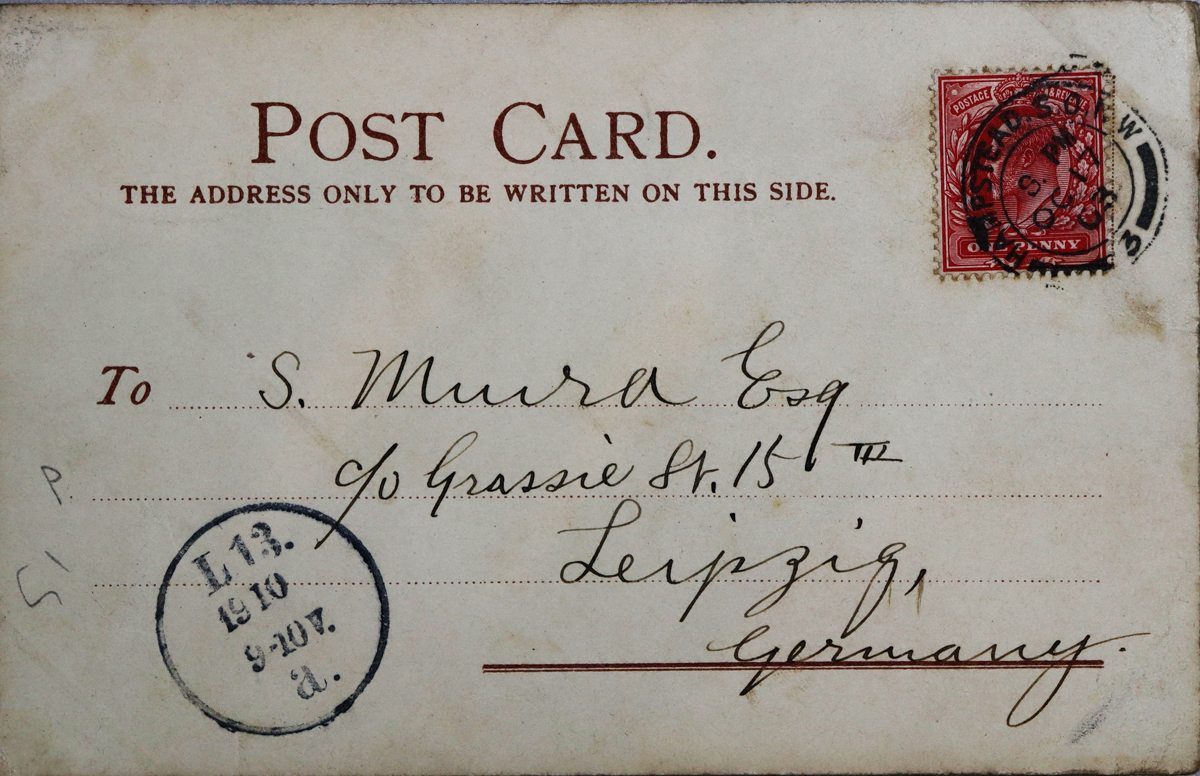 POST CARD.
THE ADDRESS ONLY TO BE WRITTEN ON THIS SIDE.
POSTAGE & REVENUE
ONE PENNY
HAMPSTEAD. S.O. N.W
PM
OC 17
03
3
To S. Miura Esq
c/o Grassie St. 15 III
Leipzig,
Germany.
P.
L 13.
19 10
9-10 V.
a.